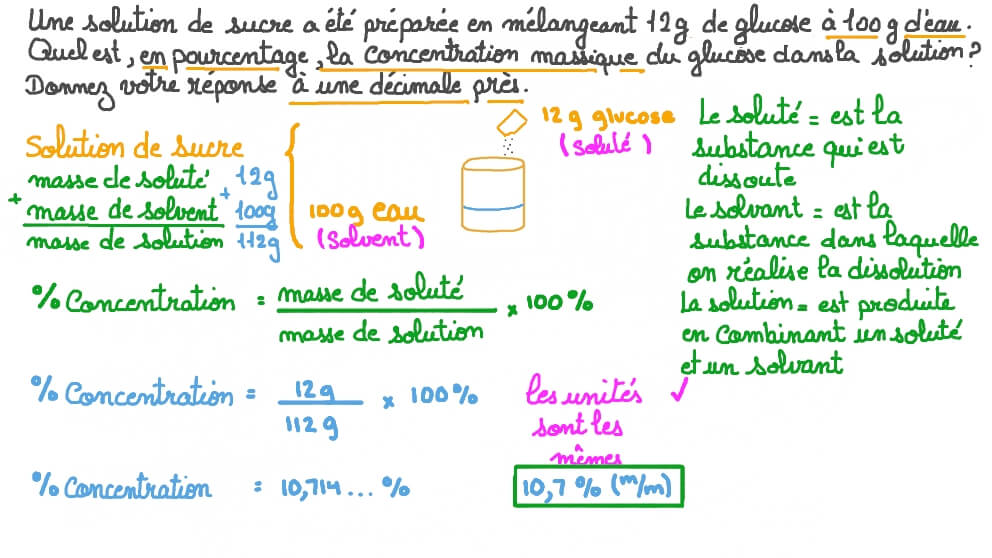 Une solution de sucre a été préparée en mélangeant 12g de glucose à 100 g d'eau.
Quel est, en pourcentage, la concentration massique du glucose dans la solution?
Donnez votre réponse à une décimale près.
Solution de sucre
masse de soluté 12g
+ masse de solvent + 100g
masse de solution 112g
100 g eau
(Solvent)
12 g glucose
(Soluté)
Le soluté = est la
substance qui est
dissoute
Le solvant = est la
substance dans laquelle
on réalise la dissolution
La solution = est produite
en combinant un soluté
et un solvant
% Concentration = masse de soluté
× 100 %
masse de solution
% Concentration = 12g
× 100 %
112 g
les unités ✓
sont les
mêmes
% Concentration = 10,714... %
10,7 % (m/m)